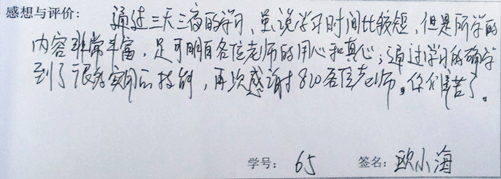 感想与评价： 通过三天三夜的学习，虽说学习时间比较短，但是所学的
内容非常丰富，足可明白各位老师的用心和真心；通过学习的确学
到了很多实用的技能，再次感谢各位老师。你们辛苦了。
学号： 65 签名： 欧小海